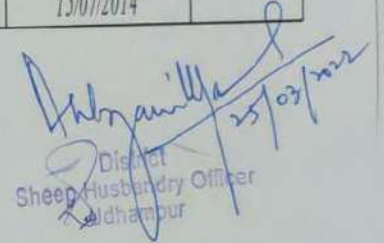 15/07/2014
25/03/2022
District
Sheep Husbandry Officer
Udhampur